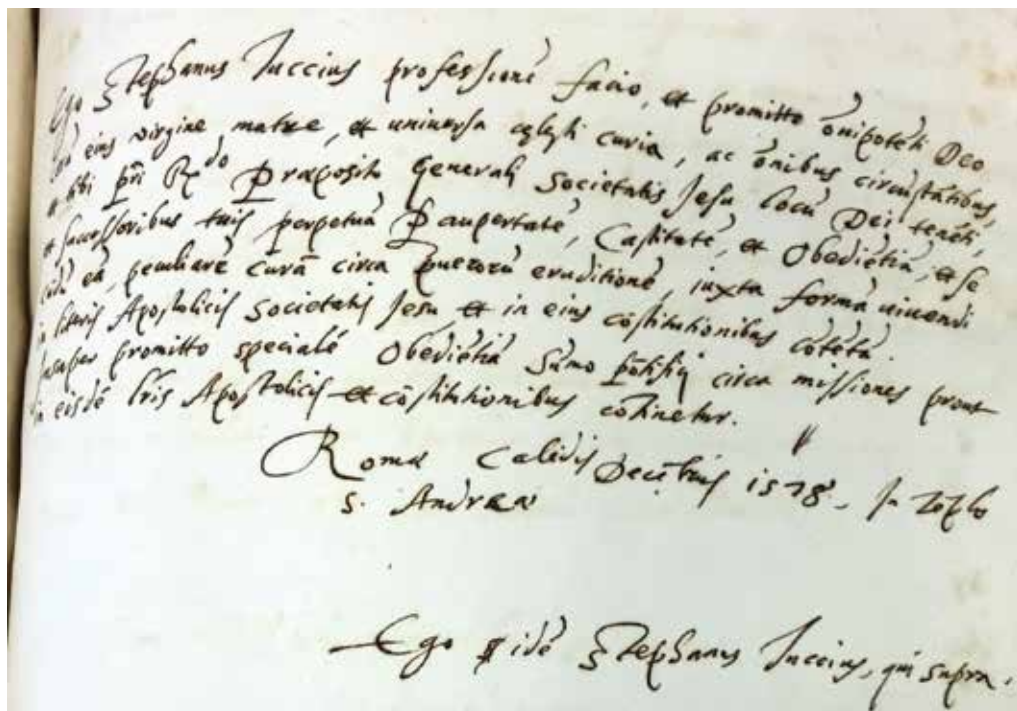 Ego Stephanus Tuccius professionē facio, et promitto ōnipotēti Deo
eius virgine matre, et uniuersa cęlesti curia, ac ōnibus circūstātibus,
et tibi pr̄i R.do Præposito Generali Societatis Jesu locū Dei tenēti,
et successoribus tuis perpetuā Paupertatē, Castitatē, et Obediētiā, et se
cūdū eā, peculiarē cūrā circa puerorū eruditionē, iuxta formā uiuendi
in litteris Apostolicis Societatis Jesu et in eius cōstitutionibus cōtētā.
Insuper promitto specialē Obediētiā Sūmo pōtifici circa missiones prout
in eisdē lr̄is Apostolicis et cōstitutionibus cōtinetur.
Romæ Calēdis Decēbris 1578. In Tēplo
S. Andreæ
Ego idē Stephanus Tuccius, qui supra.